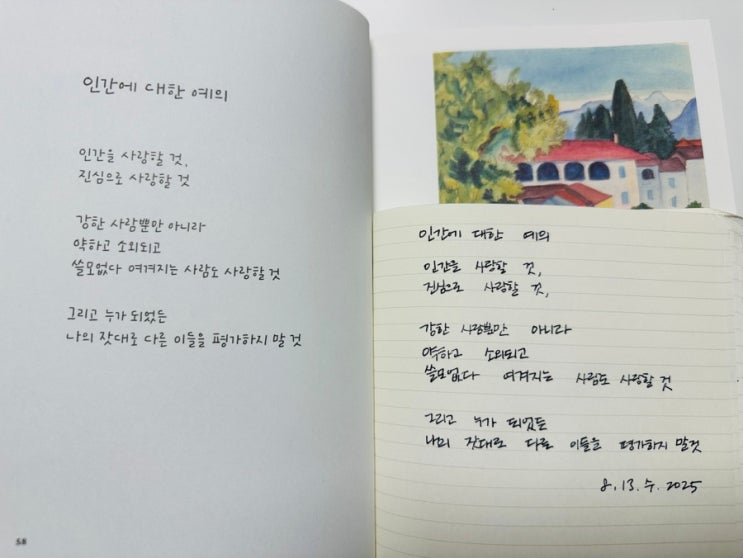 인간에 대한 예의
인간을 사랑할 것,
진심으로 사랑할 것
강한 사람뿐만 아니라
약하고 소외되고
쓸모없다 여겨지는 사람도 사랑할 것
그리고 누가 되었든
나의 잣대로 다른 이들을 평가하지 말 것
58
인간에 대한 예의
인간을 사랑할 것,
진심으로 사랑할 것,
강한 사람뿐만 아니라
약하고 소외되고
쓸모없다 여겨지는 사람도 사랑할 것
그리고 누가 되었든
나의 잣대로 다른 이들을 평가하지 말것
8. 13. 수. 2025